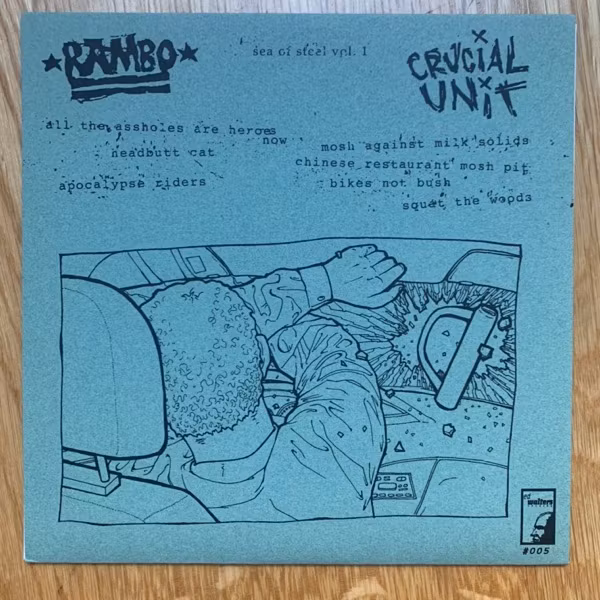 RAMBO
sea of steel vol. 1
CRUCIAL
UNIT
all the assholes are heroes
now
headbutt cat
apocalypse riders
mosh against milk solids
chinese restaurant mosh pit
bikes not bush
squat the woods
ed
walters
#005